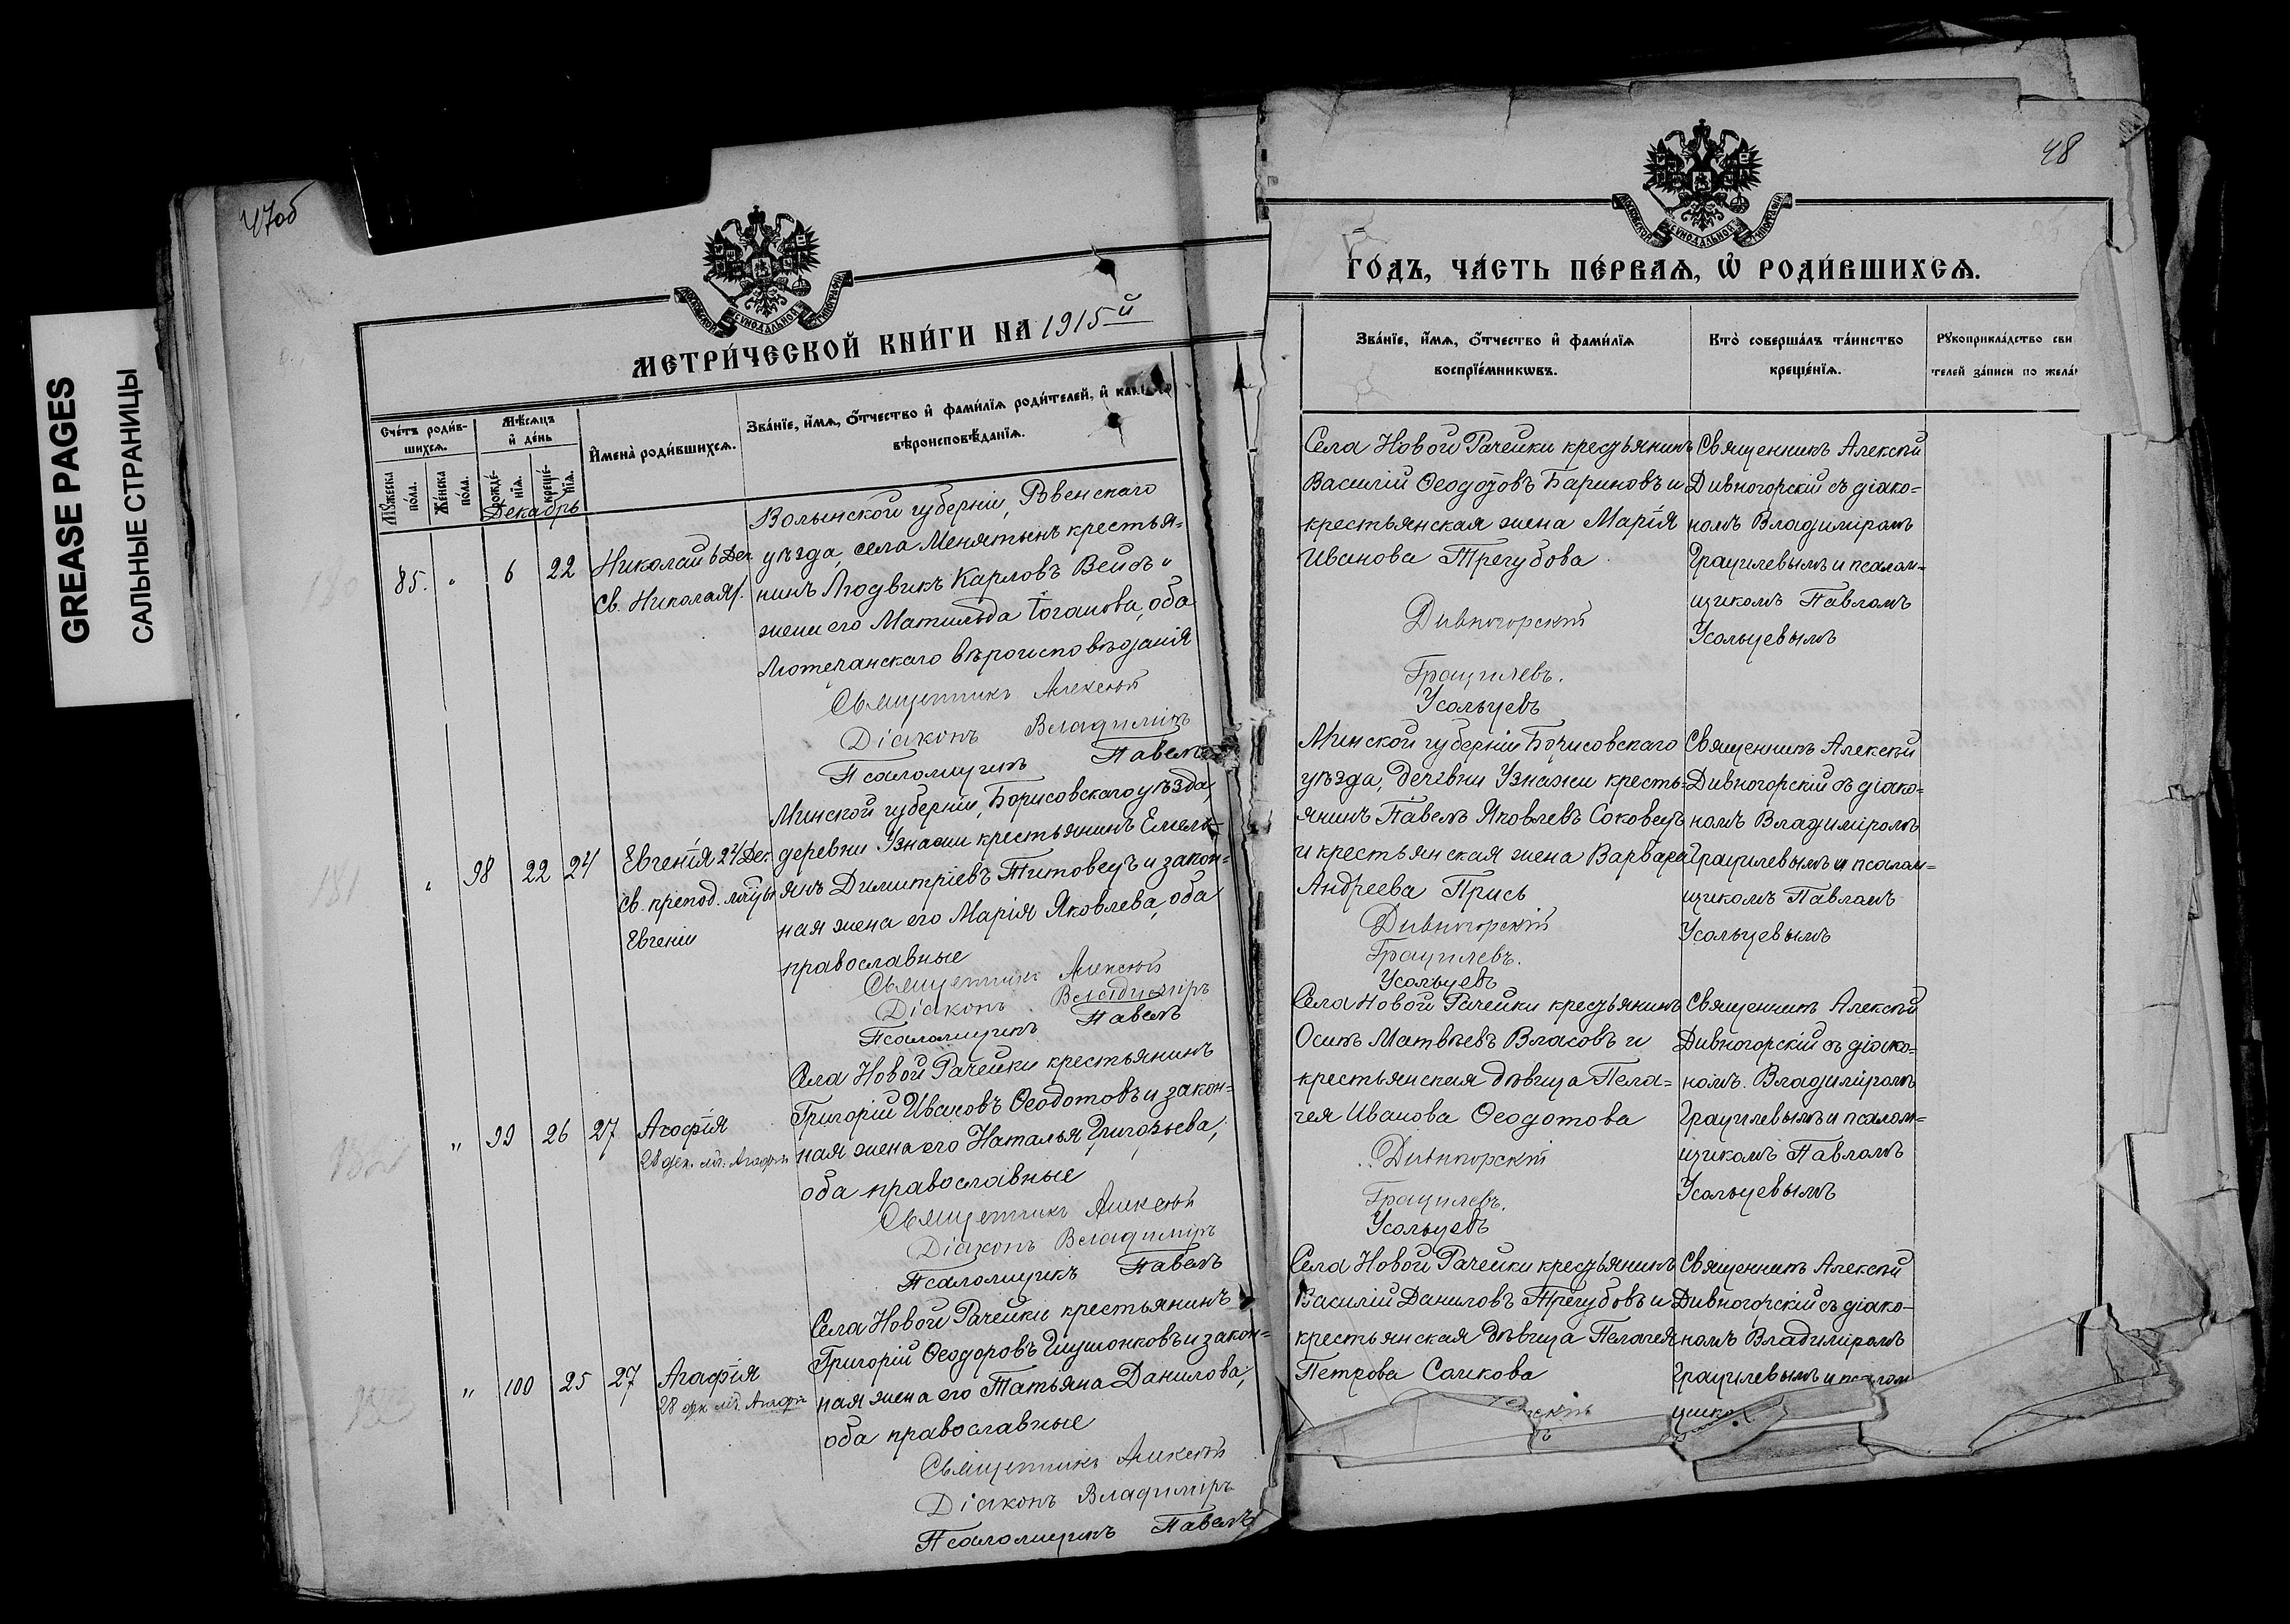 GREASE PAGES
САЛЬНЫЕ СТРАНИЦЫ
47об
МОСКОВСКОЙ СѴНОДАЛЬНОЙ ТИПОГРАФІИ
МЕТРИ́ЧЕСКОЙ КНИ́ГИ НА 1915й
Сче́тъ роди́в-
шихсѧ.
Мѣ́сѧцъ
и҆ де́нь
И҆мена̀ роди́вшихсѧ.
Зва́нїе, и҆́мѧ, ѻ҆́тчество и҆ фами́лїѧ роди́телей, и҆
вѣроисповѣ́данїѧ.
Мꙋ́жеска
по́ла.
Же́нска
по́ла.
рожде́-
нїѧ.
креще́-
нїѧ.
Декабрь
85.
"
6
22
Николай 6 Дек.
св. Николая.
Волынской губерніи, Ровенскаго
уѣзда, села Менятынъ крестья=
нинъ Людвикъ Карловъ Вейсъ и
жена его Матильда Іоганова, оба
Лютеранскаго вѣроисповѣданія
Священникъ Алексѣй
Діаконъ Владиміръ
Псаломщикъ Павелъ
"
98
22
24
Евгенія 24 Дек.
св. препод. мчцы
Евгеніи
Минской губерніи, Борисовскаго уѣзда,
деревни Узнажи крестьянинъ Емель-
янъ Димитріевъ Титовецъ и закон=
ная жена его Марія Яковлева, оба
православные
Священникъ Алексѣй
Діаконъ Владиміръ
Псаломщикъ Павелъ
"
99
26
27
Агафія
28 дек. мч. Агафіи
Села Новой Рачейки крестьянинъ
Григорій Ивановъ Ѳеодотовъ и закон=
ная жена его Наталья Григорьева,
оба православные
Священникъ Алексѣй
Діаконъ Владиміръ
Псаломщикъ Павелъ
"
100
25
27
Агафія
28 дек. мч. Агафіи
Села Новой Рачейки крестьянинъ
Григорій Ѳеодоровъ и закон=
ная жена его Татьяна Данилова,
оба православные
Священникъ Алексѣй
Діаконъ Владиміръ
Псаломщикъ Павелъ
48
МОСКОВСКОЙ СѴНОДАЛЬНОЙ ТИПОГРАФІИ
ГО́ДЪ, ЧА́СТЬ ПЕ́РВАѦ, Ѡ҆ РОДИ́ВШИХСѦ.
Зва́нїе, и҆́мѧ, ѻ҆́тчество и҆ фами́лїѧ
воспрїе́мникѡвъ.
Кто̀ соверша́лъ та́инство
креще́нїѧ.
Рꙋкоприкла́дство сви
телей за́писи по жела
Села Новой Рачейки крестьянинъ
Василій Ѳеодотовъ Бариновъ и
крестьянская жена Марія
Иванова Трегубова
Дивногорскій
Грацилевъ.
Усольцевъ
Священникъ Алексѣй
Дивногорскій съ діако=
номъ Владиміромъ
Грацилевымъ и псалом=
щикомъ Павломъ
Усольцевымъ
Минской губерніи Борисовскаго
уѣзда, деревни Узнажи кресть=
янинъ Павелъ Яковлевъ Соковецъ
и крестьянская жена Варвара
Андреева Прись
Дивногорскій
Грацилевъ.
Усольцевъ
Священникъ Алексѣй
Дивногорскій съ діако=
номъ Владиміромъ
Грацилевымъ и псалом=
щикомъ Павломъ
Усольцевымъ
Села Новой Рачейки крестьянинъ
Осипъ Матвѣевъ Власовъ и
крестьянская дѣвица Пела=
гея Иванова Ѳеодотова
Дивногорскій
Грацилевъ.
Усольцевъ
Священникъ Алексѣй
Дивногорскій съ діако=
номъ Владиміромъ
Грацилевымъ и псалом=
щикомъ Павломъ
Усольцевымъ
Села Новой Рачейки крестьянинъ
Василій Даниловъ Трегубовъ и
крестьянская дѣвица Пелагея
Петрова Сачкова
Священникъ Алексѣй
Дивногорскій съ діако=
номъ Владиміромъ
Грацилевымъ и псалом
щико